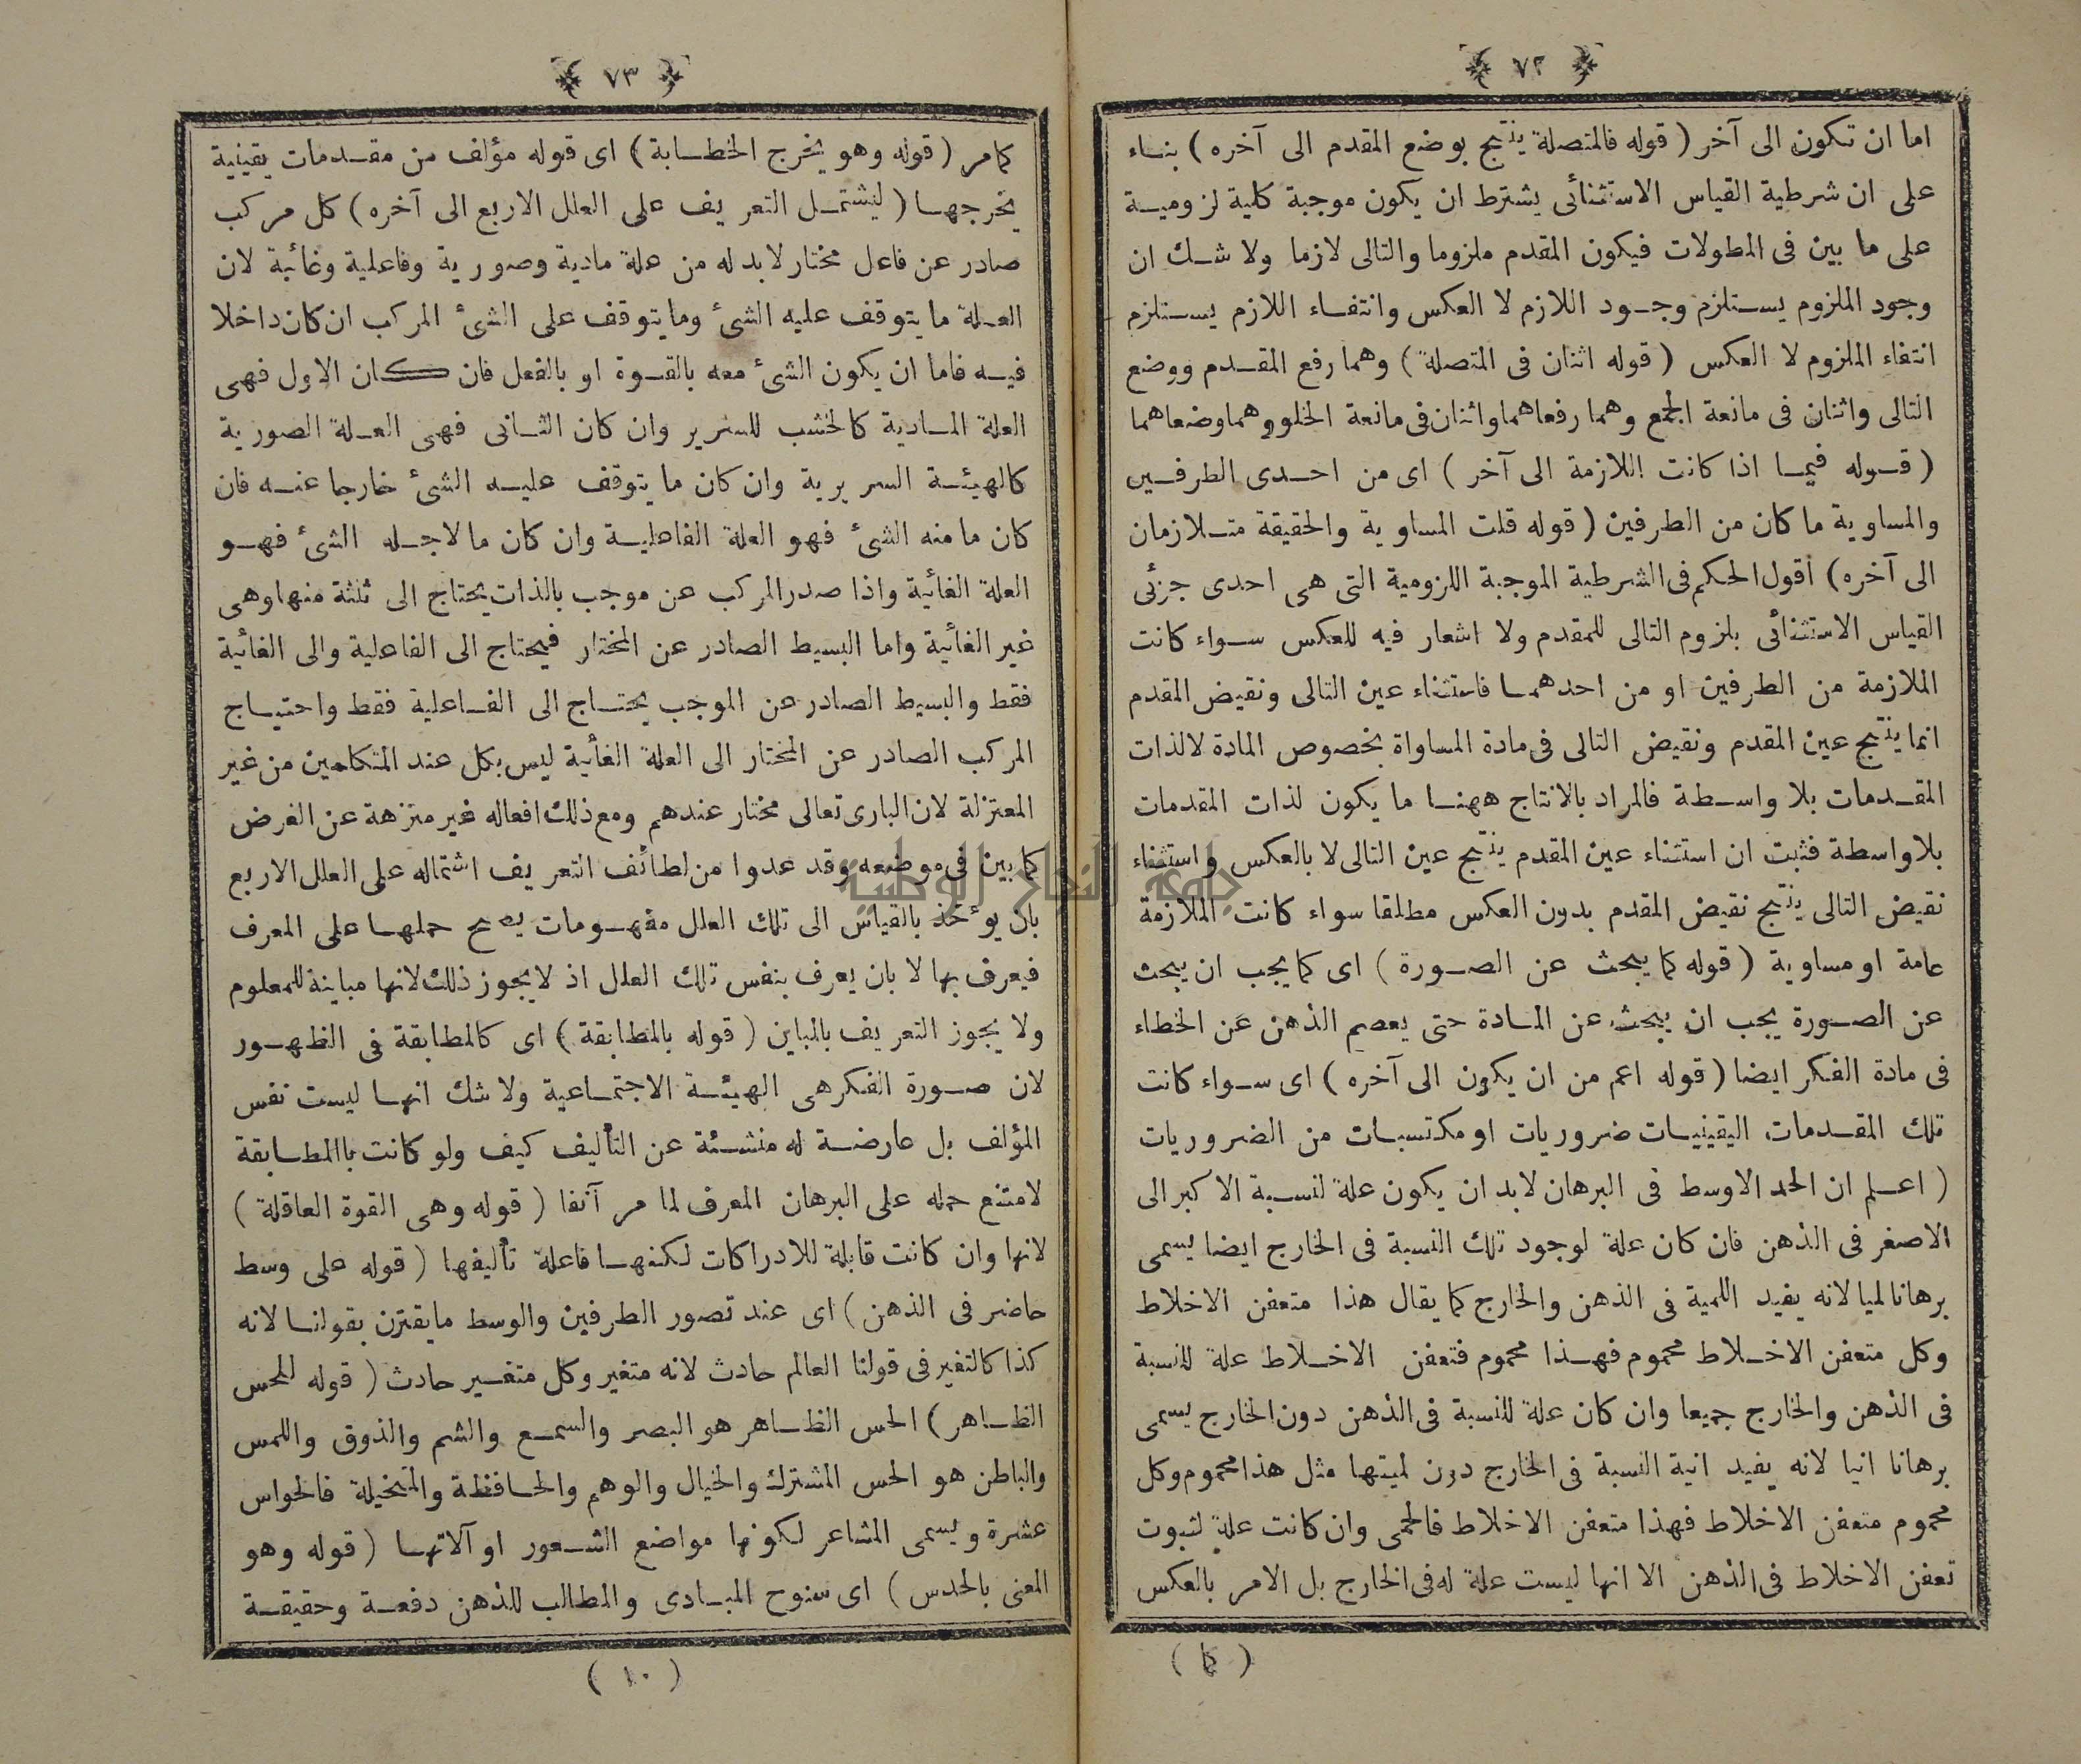 ﴿ ٧٢ ﴾
اما ان تكون الى آخر ( قوله فالمتصلة ينتج بوضع المقدم الى آخره ) بناء
على ان شرطية القياس الاستثنائى يشترط ان يكون موجبة كلية لزومية
على ما بين فى المطولات فيكون المقدم ملزوما والتالى لازما ولا شك ان
وجود الملزوم يستلزم وجود اللازم لا العكس وانتفاء اللازم يستلزم
انتفاء الملزوم لا العكس ( قوله اثنان فى المتصلة ) وهما رفع المقدم ووضع
التالى واثنان فى مانعة الجمع وهما رفعاهما واثنان فى مانعة الخلو وهما وضعاهما
( قوله فيما اذا كانت اللازمة الى آخر ) اى من احدى الطرفين
والمساوية ما كان من الطرفين ( قوله قلت المساوية والحقيقة متلازمان
الى آخره ) اقول الحكم فى الشرطية الموجبة اللزومية التى هى احدى جزئى
القياس الاستثنائى بلزوم التالى للمقدم ولا اشعار فيه للعكس سواء كانت
الملازمة من الطرفين او من احدهما فاستثناء عين التالى ونقيض المقدم
انما ينتج عين المقدم ونقيض التالى فى مادة المساواة بخصوص المادة لالذات
المقدمات بلا واسطة فالمراد بالانتاج ههنا ما يكون لذات المقدمات
بلا واسطة فثبت ان استثناء عين المقدم ينتج عين التالى لا بالعكس واستثناء
نقيض التالى ينتج نقيض المقدم بدون العكس مطلقا سواء كانت الملازمة
عامة او مساوية ( قوله كما يبحث عن الصورة ) اى كما يجب ان يبحث
عن الصورة يجب ان يبحث عن المادة حتى يعصم الذهن عن الخطاء
فى مادة الفكر ايضا ( قوله اعم من ان يكون الى آخره ) اى سواء كانت
تلك المقدمات اليقينيات ضروريات او مكتسبات من الضروريات
( اعلم ان الحد الاوسط فى البرهان لابد ان يكون علة لنسبة الاكبر الى
الاصغر فى الذهن فان كان علة لوجود تلك النسبة فى الخارج ايضا يسمى
برهانا لميا لانه يفيد اللمية فى الذهن والخارج كما يقال هذا متعفن الاخلاط
وكل متعفن الاخلاط محموم فهذا محموم فتعفن الاخلاط علة للنسبة
فى الذهن والخارج جميعا وان كان علة للنسبة فى الذهن دون الخارج يسمى
برهانا انيا لانه يفيد انية النسبة فى الخارج دون لميتها مثل هذا محموم وكل
محموم متعفن الاخلاط فهذا متعفن الاخلاط فالحمى وان كانت علة لثبوت
تعفن الاخلاط فى الذهن الا انها ليست علة له فى الخارج بل الامر بالعكس
( كما )
﴿ ٧٣ ﴾
كامر ( قوله وهو يخرج الخطابة ) اى قوله مؤلف من مقدمات يقينية
يخرجها ( ليشتمل التعريف على العلل الاربع الى آخره ) كل مركب
صادر عن فاعل مختار لابد له من علة مادية وصورية وفاعلية وغائية لان
العلة ما يتوقف عليه الشئ وما يتوقف على الشئ المركب ان كان داخلا
فيه فاما ان يكون الشئ معه بالقوة او بالفعل فان كان الاول فهى
العلة المادية كالخشب للسرير وان كان الثانى فهى العلة الصورية
كالهيئة السريرية وان كان ما يتوقف عليه الشئ خارجا عنه فان
كان ما منه الشئ فهو العلة الفاعلية وان كان ما لاجله الشئ فهو
العلة الغائية واذا صدر المركب عن موجب بالذات يحتاج الى ثلثة منها وهى
غير الغائية واما البسيط الصادر عن المختار فيحتاج الى الفاعلية والى الغائية
فقط والبسيط الصادر عن الموجب يحتاج الى الفاعلية فقط واحتياج
المركب الصادر عن المختار الى العلة الغائية ليس بكل عند المتكلمين من غير
المعتزلة لان البارى تعالى مختار عندهم ومع ذلك افعاله غير منزهة عن الغرض
كما بين فى موضعه وقد عدوا من لطائف التعريف اشتماله على العلل الاربع
بان يؤخذ بالقياس الى تلك العلل مفهومات يصح حملها على المعرف
فيعرف بها لا بان يعرف بنفس تلك العلل اذ لا يجوز ذلك لانها مباينة للمعلوم
ولا يجوز التعريف بالمباين ( قوله بالمطابقة ) اى كالمطابقة فى الظهور
لان صورة الفكر هى الهيئة الاجتماعية ولا شك انها ليست نفس
المؤلف بل عارضة له منشئة عن التأليف كيف ولو كانت باالمطابقة
لامتنع حمله على البرهان المعرف لما مر آنفا ( قوله وهى القوة العاقلة )
لانها وان كانت قابلة للادراكات لكنها فاعلة تأليفها ( قوله على وسط
حاضر فى الذهن ) اى عند تصور الطرفين والوسط ما يقترن بقولنا لانه
كذا كالتغير فى قولنا العالم حادث لانه متغير وكل متغير حادث ( قوله للحس
الظاهر ) الحس الظاهر هو البصر والسمع والشم والذوق واللمس
والباطن هو الحس المشترك والخيال والوهم والحافظة والمتخيلة فالحواس
عشرة ويسمى المشاعر لكونها مواضع الشعور او آلاتها ( قوله وهو
المعنى بالحدس ) اى سنوح المبادى والمطالب للذهن دفعة وحقيقة
( ١٠ )
جامعة النجاح الوطنية